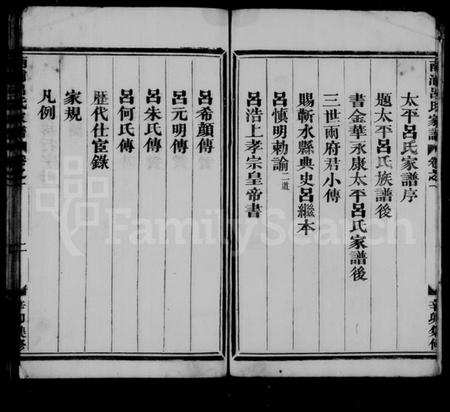 太平呂氏家譜序
題太平呂氏族譜後
書金華永康太平呂氏家譜後
三世兩府君小傳
賜蘄水縣典史呂繼本
呂愼明勅諭二道
呂浩上孝宗皇帝書
呂希顏傳
呂元明傳
呂朱氏傳
呂何氏傳
歷代仕宦錄
家規
凡例
辛卯集修
FamilySearch